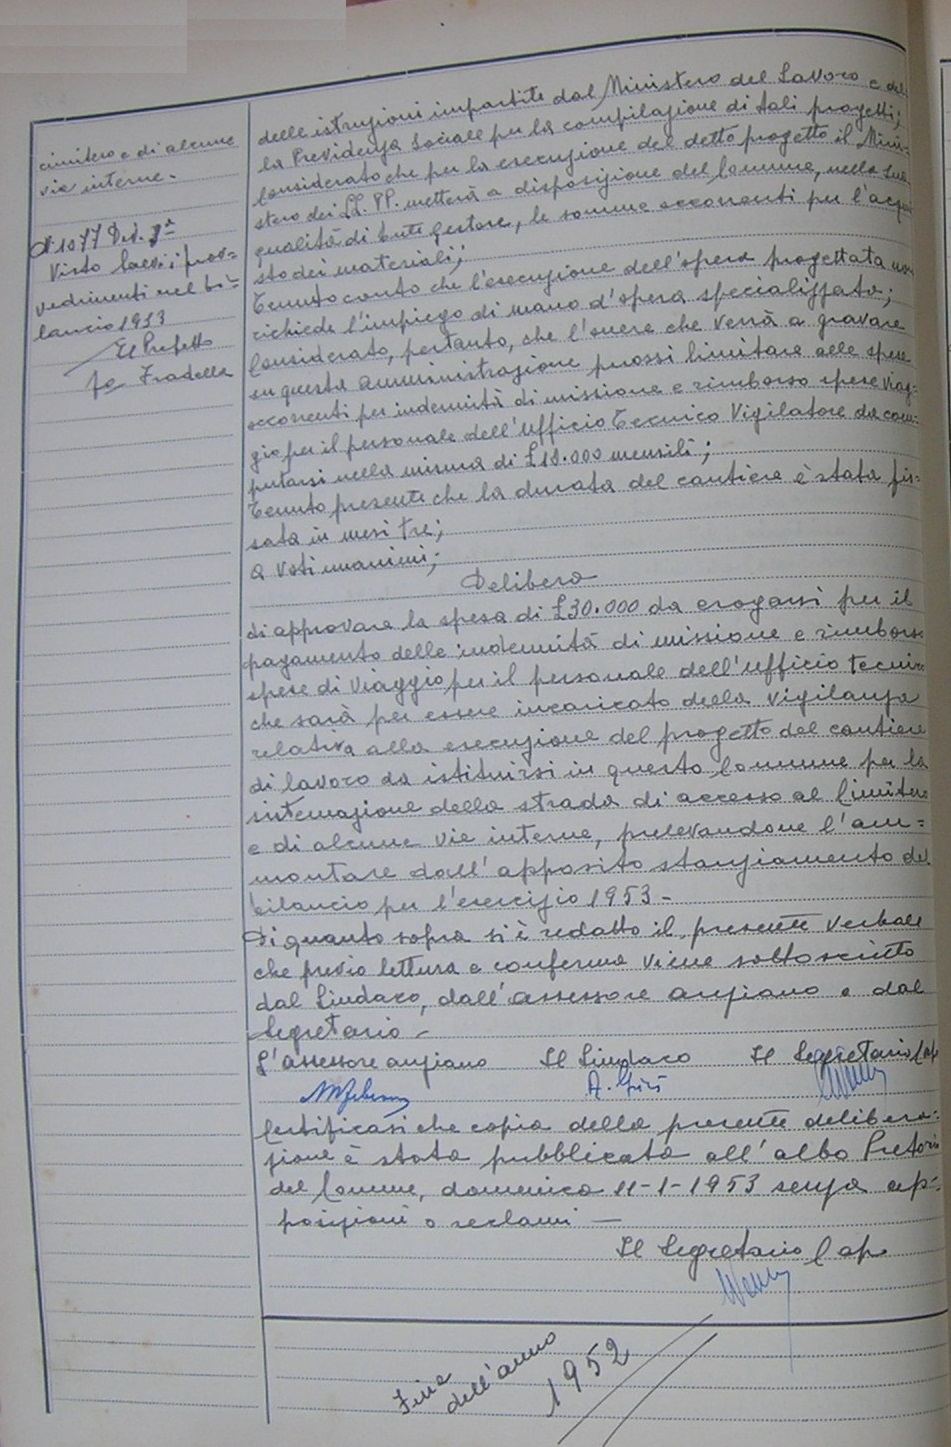 cimitero e di alcune
vie interne.
N. 1077 Div. 
Visto
vedimenti nel bi=
lancio 1953
Il Prefetto
fo Fradella
delle istruzioni impartite dal Ministero del Lavoro e del
la Previdenza Sociale per la compilazione di tali progetti;
Considerato che per la esecuzione del detto progetto il Mini-
stero dei LL. PP. metterà a disposizione del Comune, nella sua
qualità di Ente gestore, le somme occorrenti per l'acqui
sto dei materiali;
Tenuto conto che l'esecuzione dell'opera progettata non
richiede l'impiego di mano d'opera specializzata;
Considerato, pertanto, che l'onere che verrà a gravare
su questa amministrazione possi limitare alle spese
occorrenti per indennità di missione e rimborso spese viag-
gio per il personale dell'ufficio Tecnico Vigilatore da com-
putarsi nella misura di £10.000 mensili;
Tenuto presente che la durata del cantiere è stata fis=
sata in mesi tre;
a voti unanimi;
Delibera
di approvare la spesa di £30.000 da erogarsi per il
pagamento delle indennità di missione e rimborso
spese di viaggio per il personale dell'ufficio tecnico
che sarà per essere incaricato della vigilanza
relativa alla esecuzione del progetto del cantiere
di lavoro da istituirsi in questo Comune per la
sistemazione della strada di accesso al Cimitero
e di alcune vie interne, prelevandone l'am=
montare dall'apposito stanziamento del
bilancio per l'esercizio 1953 -
Di quanto sopra si è redatto il presente verbale
che previo lettura e conferma viene sottoscritto
dal Sindaco, dall'assessore anziano e dal
Segretario -
L'assessore anziano Il Sindaco Il Segretario Cap
Certificasi che copia della presente delibera=
zione è stata pubblicata all'albo Pretorio
del Comune, domenica 11-1-1953 senza op=
posizioni o reclami —
Il Segretario Cap
Fine
dell'anno
1952